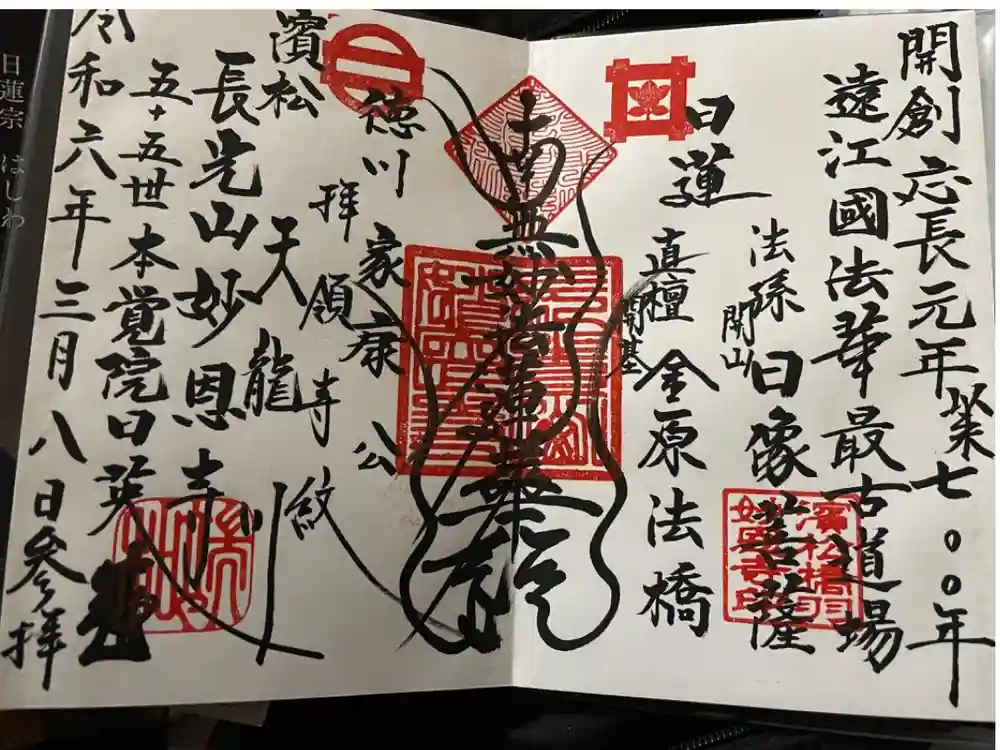 開創 応長元年以来七〇〇年
遠江國法華最古道場
日蓮
法孫 日像菩薩
開山
真檀 金原法橋
開基
南無妙法蓮華経
徳川家康公
拝領寺紋
濱松 天龍川
長光山妙恩寺
五十五世本覚院日英
令和六年三月八日参拝
濱松橋羽
妙恩寺印
日蓮宗 はしわ